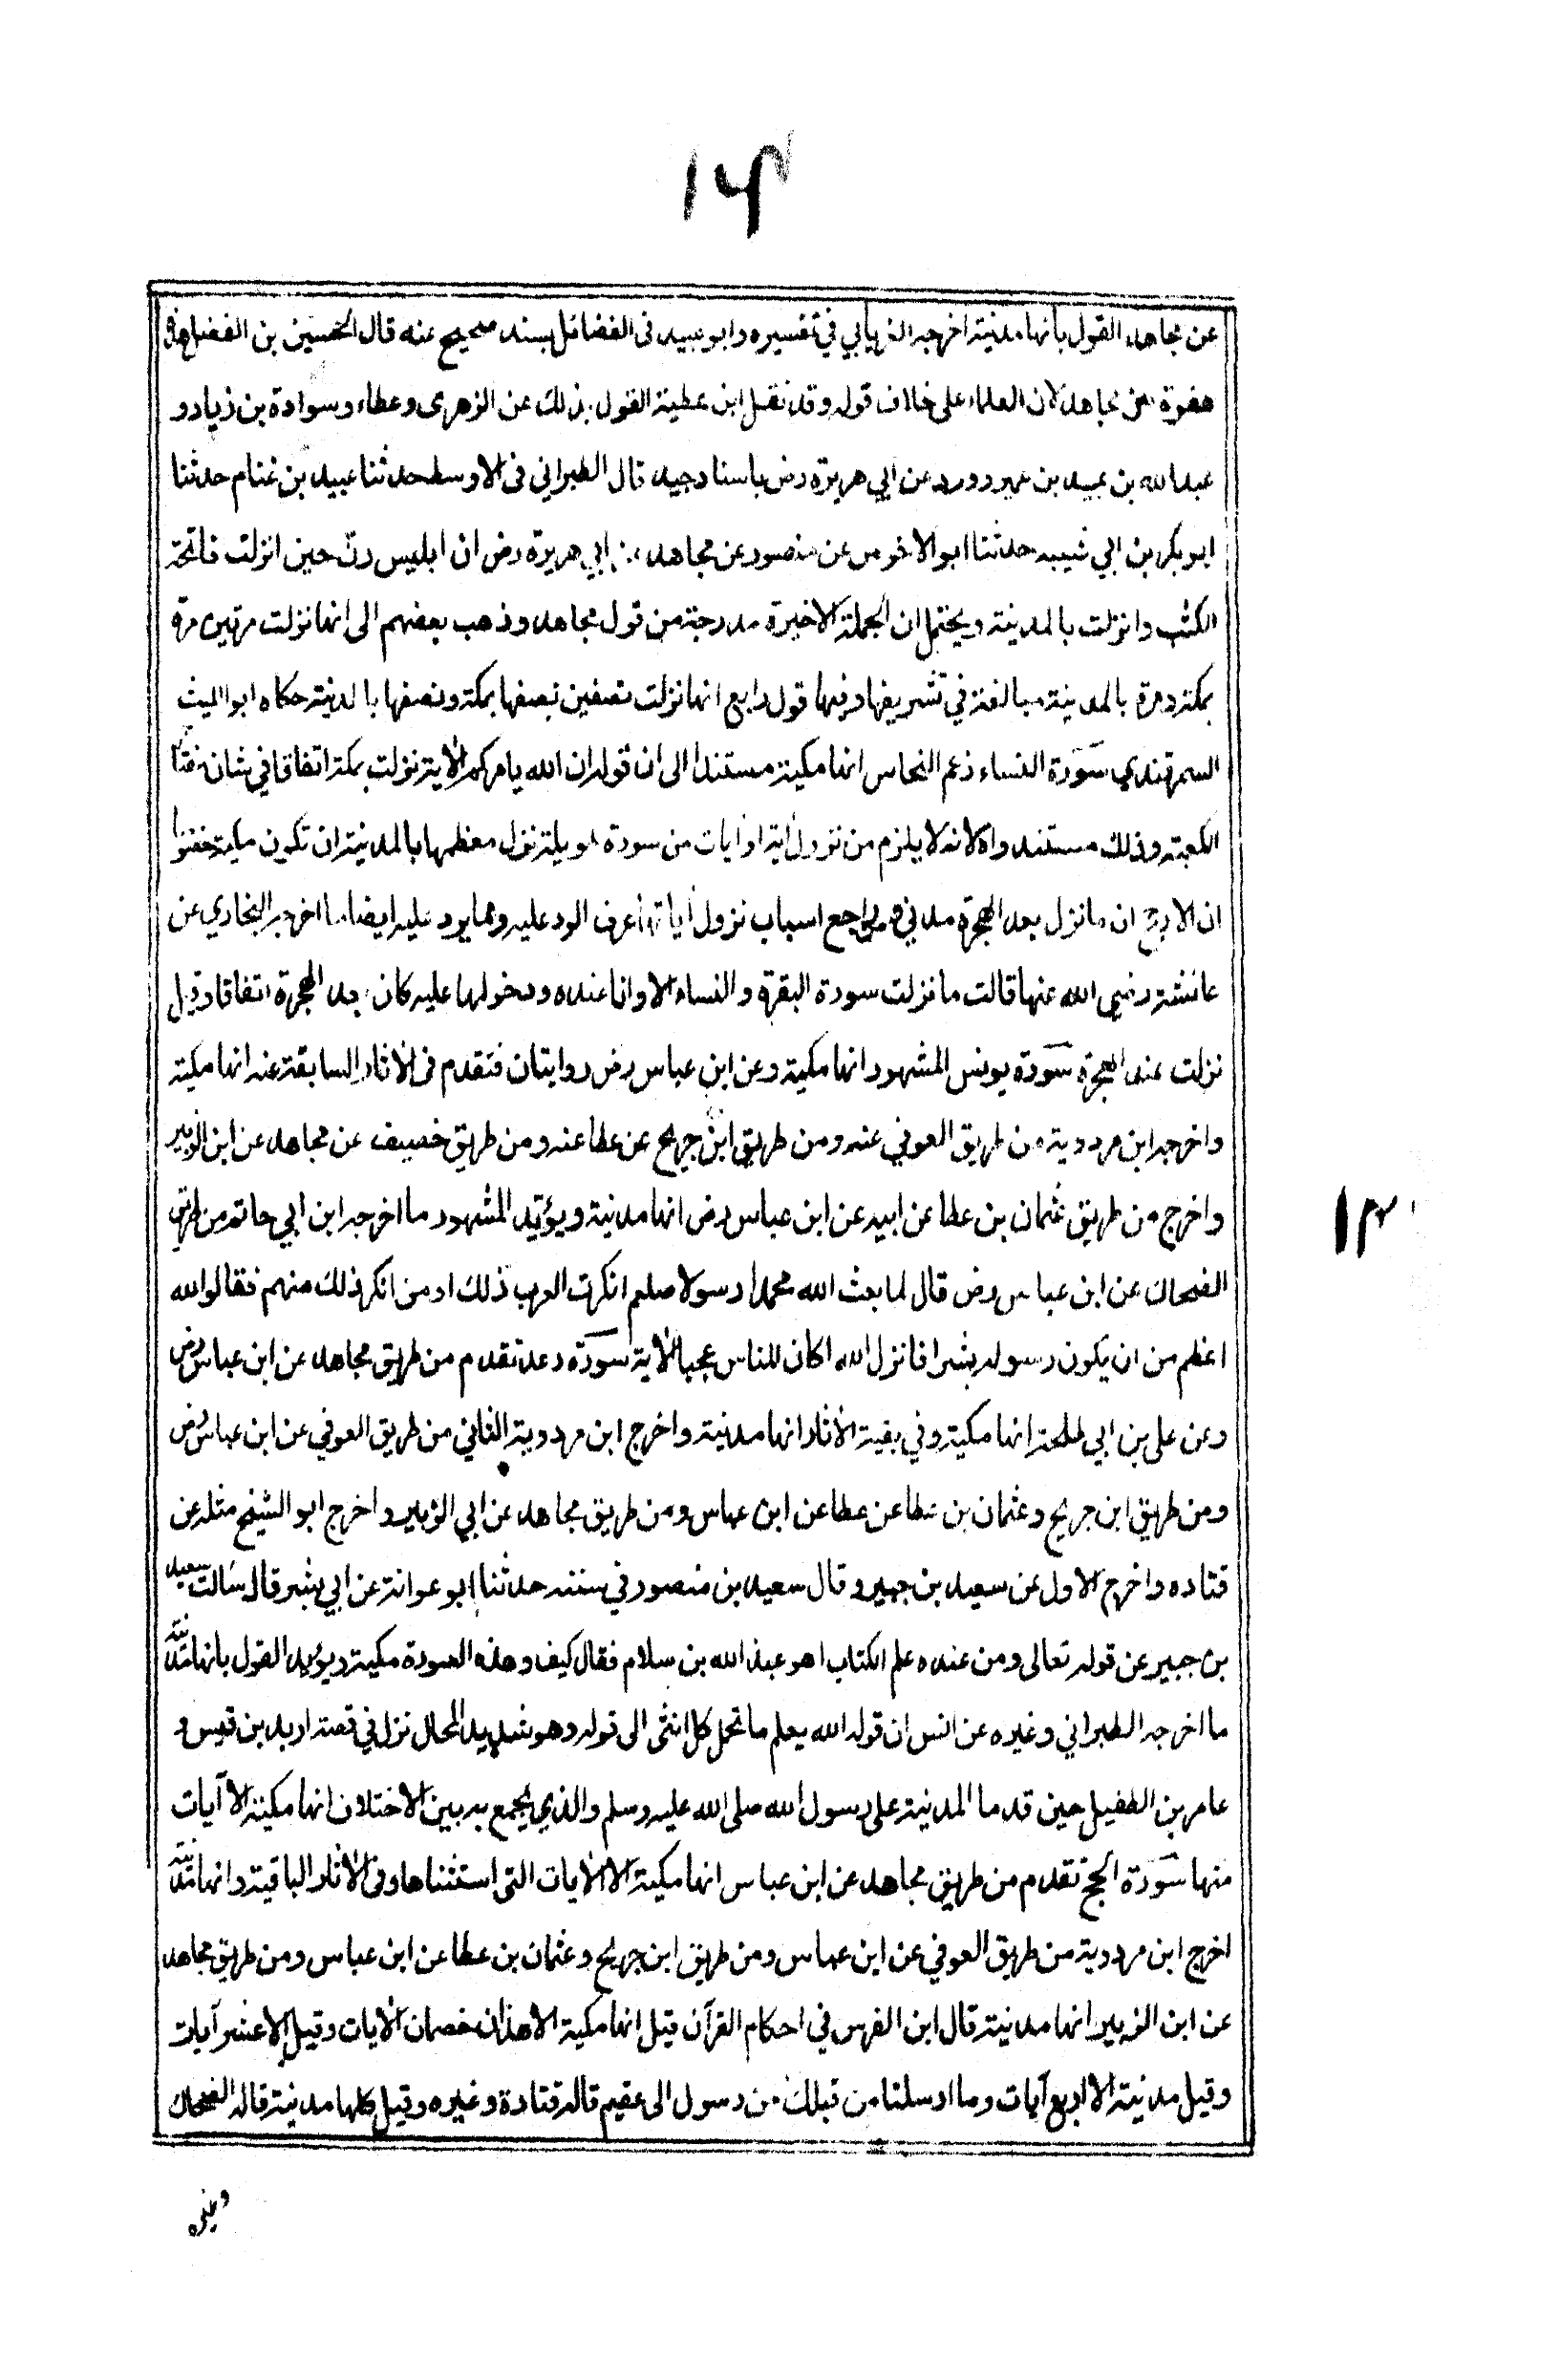 ١٤
عن مجاهد القول بأنها مدنية اخرجه الفريابي في تفسيره وابو عبيد فى الفضائل بسند صحيح عنه قال الحسين بن الفضل هذا
هفوة من مجاهد لان العلماء على خلاف قوله وقد نقل ابن عطية القول بذلك عن الزهرى وعطاء وسوادة بن زياد و
عبد الله بن عبيد بن عمير وورد عن ابي هريرة رض باسناد جيد قال الطبراني فى الاوسط حدثنا عبيد بن غنام حدثنا
ابو بكر بن ابي شيبه حدثنا ابو الاخوص عن منصور عن مجاهد عن ابي هريرة رض ان ابليس رنّ حين انزلت فاتحة
الكتب وانزلت بالمدينة ويحتمل ان الجملة الاخيرة مدرجة من قول مجاهد وذهب بعضهم الى انها نزلت مرتين مرة
بمكة ومرة بالمدينة مبالغة في تشريفها وفيها قول رابع انها نزلت نصفين نصفها بمكة ونصفها بالمدنية حكاه ابو الليث
السمرقندي سورة النساء زعم النحاس انها مكية مستندا الى ان قوله ان الله يامركم الأية نزلت بمكة اتفاقا في شان مفتاح
الكعبة وذلك مستند واه لانه لا يلزم من نزول أية او أيات من سورة طويلة نزل معظمها بالمدنية ان تكون مكية خصوصا
ان الارجح ان ما نزل بعد الهجرة مدني ومن راجع اسباب نزول أياتها عرف الرد عليه ومما يرد عليه ايضا ما اخرجه البخاري عن
عائشة رضي الله عنها قالت ما نزلت سورة البقرة والنساء الا وانا عنده ودخولها عليه كان بعد الهجرة اتفاقا وقيل
نزلت عند الهجرة سورة يونس المشهور انها مكية وعن ابن عباس رض روايتان فتقدم فى الأثار السابقة عنه انها مكية
واخرجه ابن مردوية من طريق العوفي عنه ومن طريق ابن جريج عن عطا عنه ومن طريق خصيف عن مجاهد عن ابن الزبير
واخرج من طريق عثمان بن عطا عن ابيه عن ابن عباس رض انها مدنية ويؤيد المشهور ما اخرجه ابن ابي حاتم من طريق
الضحاك عن ابن عباس رض قال لما بعث الله محمدا رسولا صلعم انكرت العرب ذلك او من انكر ذلك منهم فقالوا الله
اعظم من ان يكون رسوله بشرا فانزل الله اكان للناس عجبا الأية سورة رعد تقدم من طريق مجاهد عن ابن عباس رض
وعن على بن ابي طلحة انها مكية وفي بقية الأثار انها مدنية واخرج ابن مردوية الثاني من طريق العوفي عن ابن عباس رض
ومن طريق ابن جريج وعثمان بن عطا عن عطا عن ابن عباس ومن طريق مجاهد عن ابي الزبير واخرج ابو الشيخ مثله عن
قتاده واخرج الاول عن سعيد بن جبير وقال سعيد بن منصور في سننه حدثنا ابو عوانة عن ابي بشر قال سالت سعيد
بن جبير عن قوله تعالى ومن عنده علم الكتاب اهو عبد الله بن سلام فقال كيف وهذه السورة مكية ويؤيد القول بانها مدنية
ما اخرجه الطبراني وغيره عن انس ان قوله الله يعلم ما تحمل كل انثى الى قوله وهو شديد المحال نزل في قصة اربد بن قيس و
عامر بن الطفيل حين قدما المدنية على رسول الله صلى الله عليه وسلم والذي يجمع به بين الاختلاف انها مكية الا آيات
منها سورة الحج تقدم من طريق مجاهد عن ابن عباس انها مكية الا الأيات التى استثناها وفى الأثار الباقية وانها مدنية
اخرج ابن مردوية من طريق العوفي عن ابن عباس ومن طريق ابن جريج وعثمان بن عطا عن ابن عباس ومن طريق مجاهد
عن ابن الزبير انها مدنية قال ابن الفرس في احكام القرآن قيل انها مكية الا هذان خصمان الأيات وقيل الا عشر آيات
وقيل مدنية الا اربع آيات وما ارسلنا من قبلك من رسول الى عقيم قاله قتادة وغيره وقيل كلها مدنية قاله الضحاك
١٢
وغيره